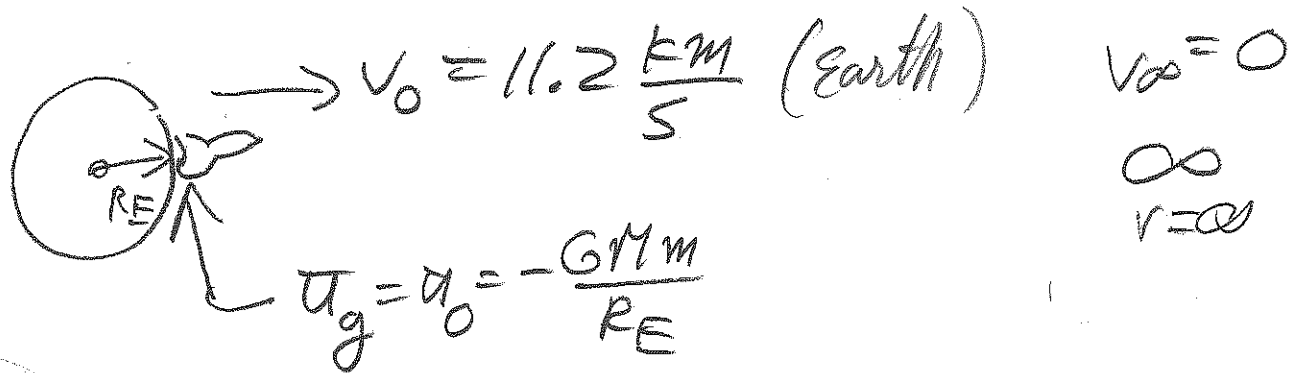 V₀ = 11.2 km/s (Earth)
V∞ = 0
∞
r = ∞
R_E
U_g = U₀ = -GMm/R_E